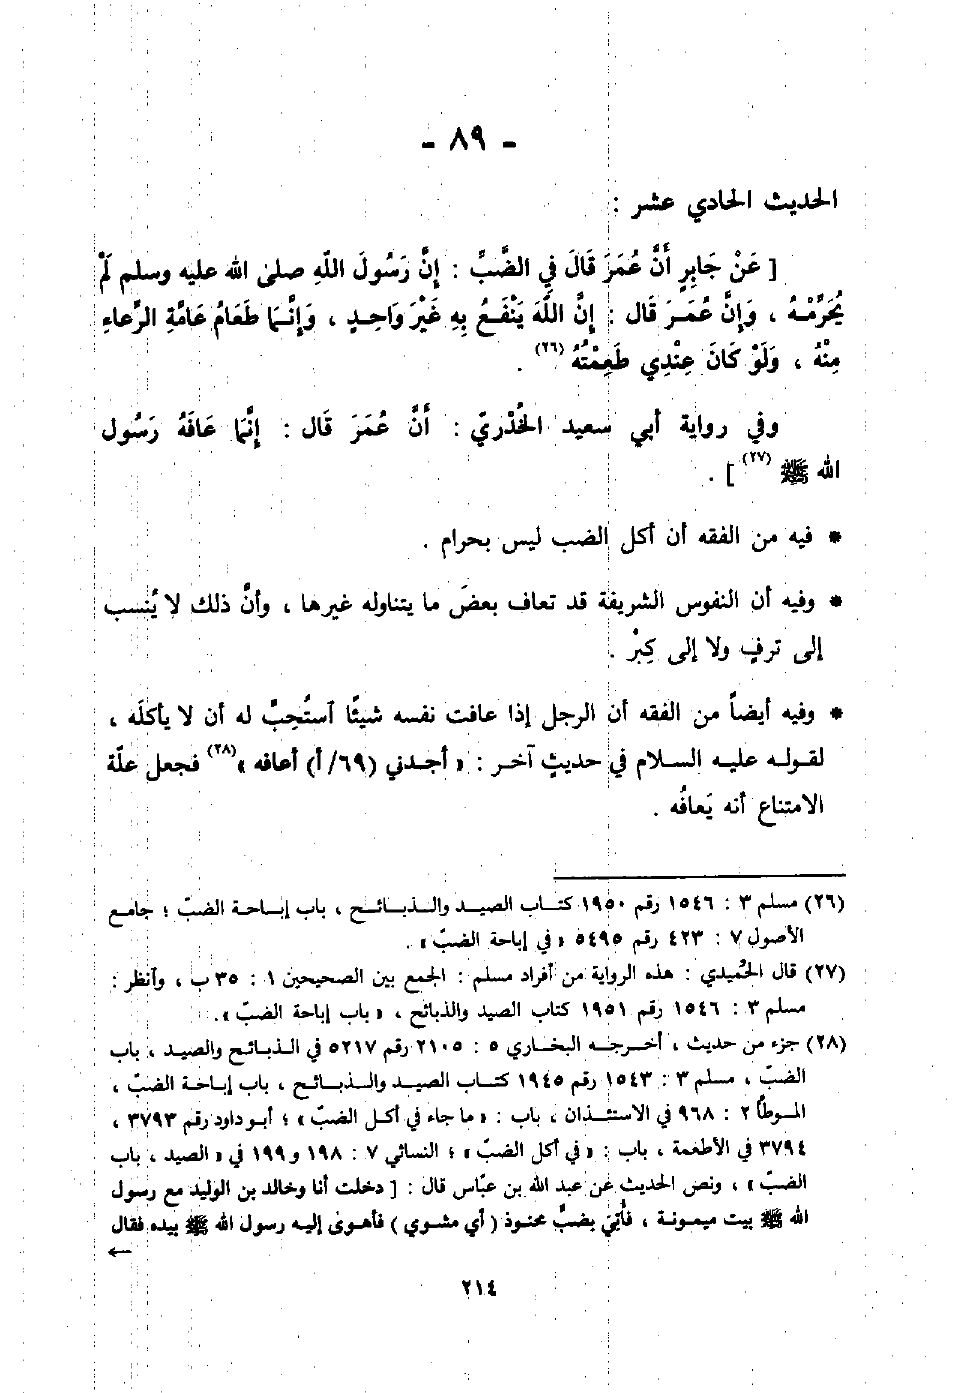 - ٨٩ -
الحديث الحادي عشر :
[ عَنْ جَابِرٍ أَنَّ عُمَرَ قَالَ فِي الضَّبِّ : إِنَّ رَسُولَ اللّهِ صلى الله عليه وسلم لَمْ
يُحَرِّمْهُ ، وَإِنَّ عُمَرَ قَال : إِنَّ اللَّهَ يَنْفَعُ بِهِ غَيْرَ وَاحِدٍ ، وَإِنَّمَا طَعَامُ عَامَّةِ الرِّعاءِ
مِنْهُ ، وَلَوْ كَانَ عِنْدِي طَعِمْتُهُ (٢٦) .
وفي رواية أبي سعيد الخُدْريّ : أَنَّ عُمَرَ قَال : إِنَّمَا عَافَهُ رَسُول
الله ﷺ (٢٧) ] .
* فيه من الفقه أن أكل الضب ليس بحرام .
* وفيه أن النفوس الشريفة قد تعاف بعضَ ما يتناوله غيرها ، وأنَّ ذلك لا يُنسب
إلى ترفٍ ولا إلى كِبْرٍ .
* وفيه أيضاً من الفقه أن الرجل إذا عافت نفسه شيئًا ٱستُحِبَّ له أن لا يأكلَه ،
لقوله عليه السلام في حديثٍ آخر : « أجدني (٦٩/ أ) أعافه » (٢٨) فجعل علّة
الامتناع أنه يَعافُه .
(٢٦) مسلم ٣ : ١٥٤٦ رقم ١٩٥٠ كتاب الصيد والذبائح ، باب إباحة الضبّ ؛ جامع
الأصول ٧ : ٤٢٣ رقم ٥٤٩٥ « في إباحة الضبّ » .
(٢٧) قال الحُميدي : هذه الرواية من أفراد مسلم : الجمع بين الصحيحين ١ : ٣٥ ب ، وٱنظر :
مسلم ٣ : ١٥٤٦ رقم ١٩٥١ كتاب الصيد والذبائح ، « باب إباحة الضبّ » .
(٢٨) جزء من حديث ، أخرجه البخاري ٥ : ٢١٠٥ رقم ٥٢١٧ في الذبائح والصيد ، باب
الضبّ ، مسلم ٣ : ١٥٤٣ رقم ١٩٤٥ كتاب الصيد والذبائح ، باب إباحة الضبّ ،
الموطأ ٢ : ٩٦٨ في الاستئذان ، باب : « ما جاء في أكل الضبّ » ؛ أبو داود رقم ٣٧٩٣ ،
٣٧٩٤ في الأطعمة ، باب : « في أكل الضبّ » ؛ النسائي ٧ : ١٩٨ و١٩٩ في « الصيد ، باب
الضبّ » ، ونص الحديث عن عبد الله بن عبّاس قال : [ دخلت أنا وخالد بن الوليد مع رسول
الله ﷺ بيت ميمونة ، فأُتِيَ بضبٍّ محنوذ ( أي مشوي ) فأهوى إليه رسول الله ﷺ بيده فقال
←
٢١٤